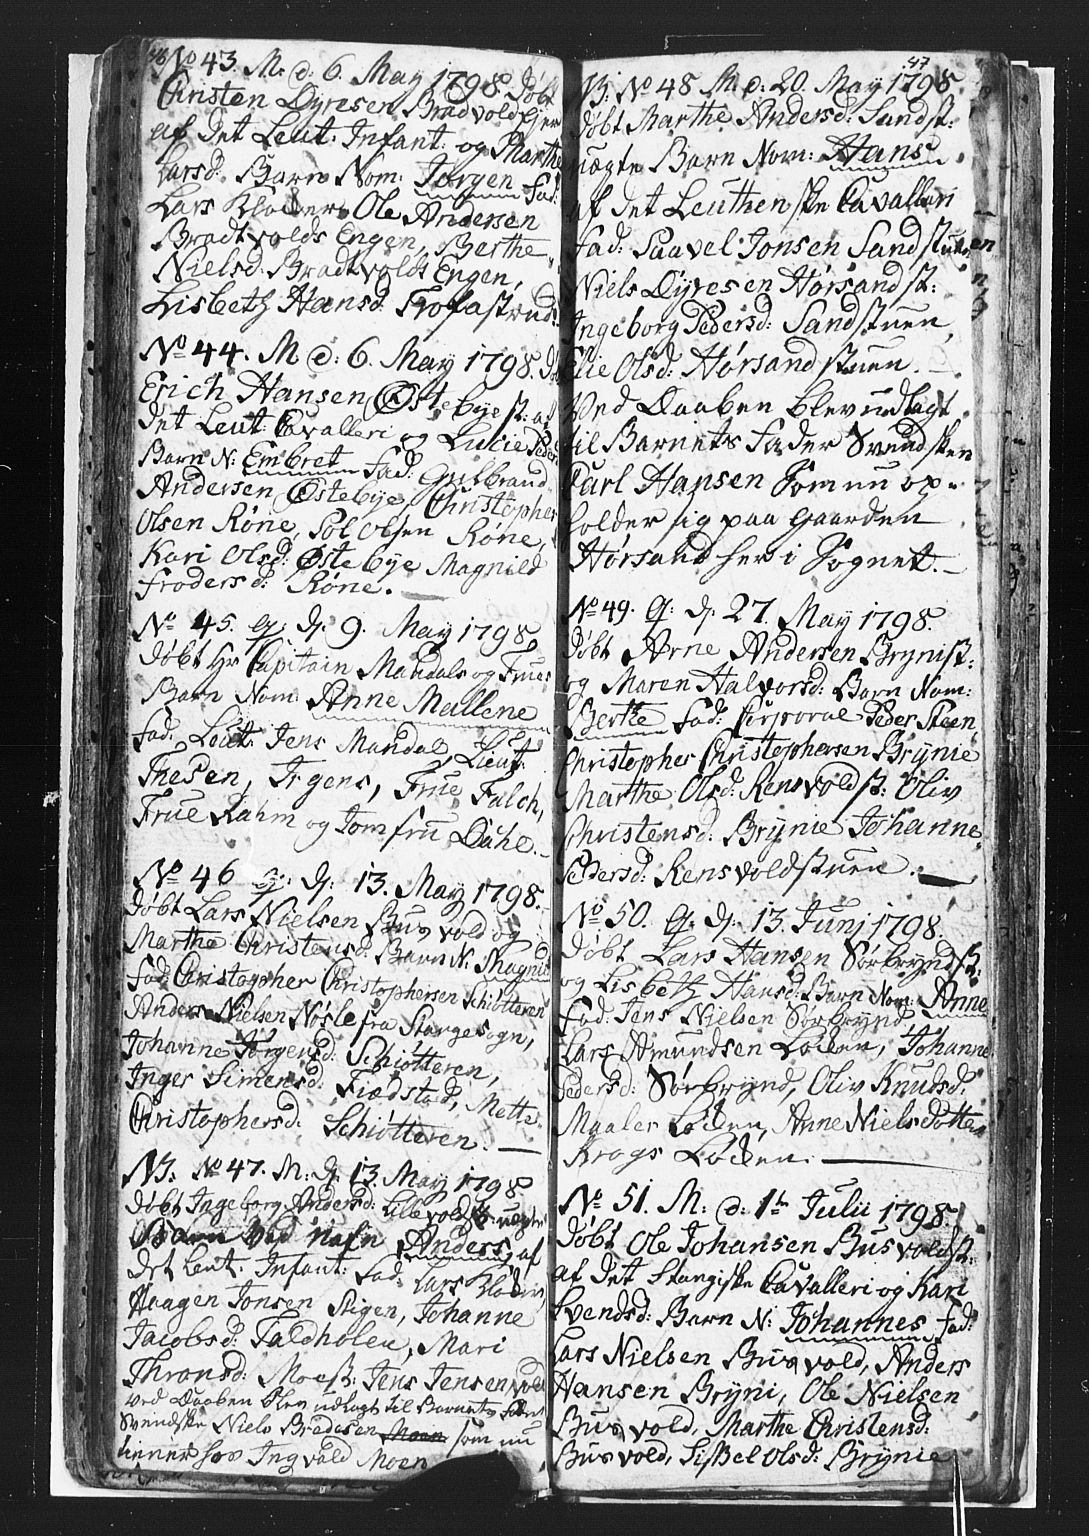 46
No 43. M. d: 6. May 1798. Døbt
Christen Dyresen Bradvold Ejer
af det Leut: Infant: og Marthe
Larsd: Barn Nom: Jørgen Fad:
Lars Ole Andersen
Bradtvolds Engen, Berthe
Nielsd: Bradtvolds Engen,
Lisbeth Hansd: Trofastrud.
No 44. M d: 6. May 1798. d
Erich Hansen Østebye st: af
det Leut: Cavalleri og Lucie Peders
Barn N: Embret Fad: Gulbrand
Andersen Østebye, Christopher
Olsen Røne, Pol Olsen Røne,
Kari Olsd: Østebye Magnild
Frodersd: Røne.
No 45. d. 9. May 1798
Døbt Hr Capitain Mandals og Frues
Barn Nom: Anne Mallene
Fad: Leut: Jens Mandal, Lieut:
Thesen, Irgens, Frue Falch,
Frue Rahm og Jomfru Dahl.
No 46 d. 13. May 1798.
Døbt Lars Nielsen Busvold og
Marthe Christensd: Barn N: Magnil
Fad: Christopher Christophersen Schiøtteren
Anders Nielsen Nøsle fra Stangesogn,
Johanne Jørgensd: Schiøtteren,
Inger Simensd: Fiædstad, Mette
Christophersd: Schiøtteren.
NB. No 47. M: d. 13. May 1798
Døbt Ingeborg Andersd: Lillevoldst: uægte
Barn ved nafn Anders, af
det Leut: Infant: Fad: Lars
Haagen Jonsen Stigen, Johanne
Jacobsd: Faldholen, Mari
Thronsd: Moest: Jens Jensen
ved Daaben blev udlagt til Barnets Fader
Svendske Niels Bredesen Moen som nu
tiener hos Ingvald Moen
47
NB: No 48 M. d: 20. May 1798.
Døbt Marthe Andersd: Sandst:
uægte Barn Nom: Hans
af det Leuthenske Cavalleri
Fad: Paavel Jonsen Sandstuen
Niels Dyresen Hørsandst:
Ingeborg Pedersd: Sandstuen,
Elie Olsd: Hørsandstuen.
Ved Daaben blev udlagt
til Barnets Fader Svendsken
Carl Hansen Som nu op-
holder sig paa Gaarden
Hørsand her i Sognet.
No 49. d. 27. May 1798.
Døbt Arne Andersen Brynist:
og Maren Halvorsd: Barn Nom:
Berthe Fad: Corporal Peder Steen
Christopher Christophersen Brynie
Marthe Olsd: Rensvoldst: Oliv
Christensd: Brynie Johanne
Pedersd: Rensvoldstuen.
No 50. d. 13. Junj 1798.
Døbt Lars Hansen Sørbryndst:
og Lisbeth Hansd: Barn Nom: Anne
Fad: Jens Nielsen Sørbrynd
Lars Amundsen Løcken, Johanne
Pedersd: Sørbrynd, Oliv Knudsd:
Maaler Løcken, Anne Nielsdotter
Krogs Løcken.
No 51. M: d: 1te Julii 1798.
Døbt Ole Johansen Busvoldst:
af det Stangiske Cavalleri og Kari
Svendsd: Barn N: Johannes Fad:
Lars Nielsen Busvold, Anders
Hansen Bryni, Ole Nielsen
Busvold, Marthe Christensd:
Busvold, Sissel Olsd: Brynie